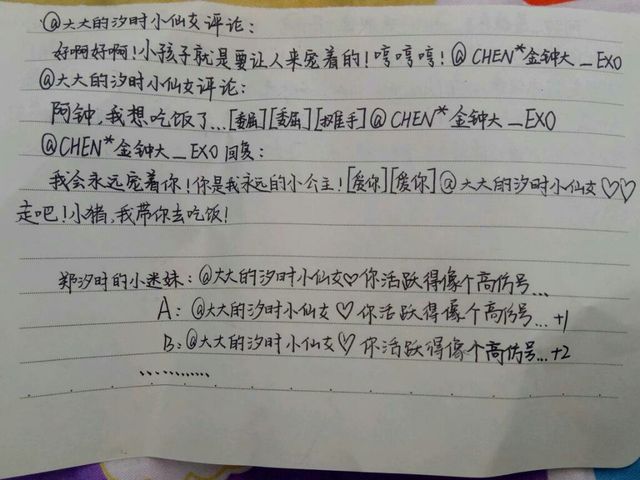 @大大的汐时小仙女评论:
好啊好啊!小孩子就是要让人来宠着的!哼哼哼!@CHEN*金钟大_EXO
@大大的汐时小仙女评论:
阿钟,我想吃饭了...[委屈][委屈][摊手]@CHEN*金钟大_EXO
@CHEN*金钟大_EXO回复:
我会永远宠着你!你是我永远的小公主![爱你][爱你]@大大的汐时小仙女♡♡
走吧!小猪,我带你去吃饭!
郑汐时的小迷妹:@大大的汐时小仙女♡你活跃得像个高仿号...
A:@大大的汐时小仙女♡你活跃得像个高仿号...+1
B:@大大的汐时小仙女♡你活跃得像个高仿号...+2
...........